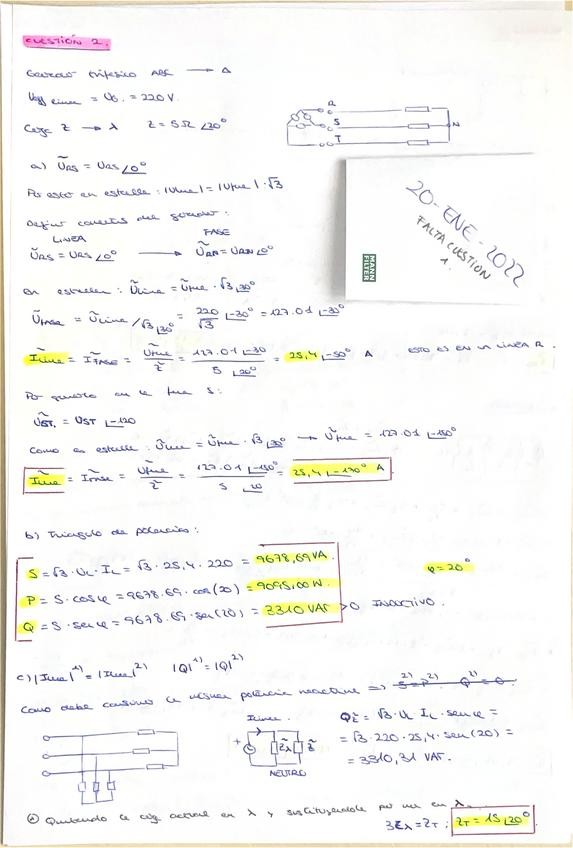 CUESTIÓN 2.
Generador trifásico ABC → Δ
Ueff línea = UG = 220 V.
Carga Z → λ Z = 5Ω ∠20°
R
S
T
N
a) ŨRS = URS ∠0°
Por estar en estrella: |Ulinea| = |Ufase| · √3
Definir conexión del generador:
LINEA FASE
ŨRS = URS ∠0° → ŨRN = URN ∠0°
En estrella: Ũlinea = Ũfase · √3 ∠30°
ŨFASE = Ũlinea / √3 ∠30° = 220/√3 ∠-30° = 127.01 ∠-30°
Ĩlinea = ĨFASE = Ũfase / Z̃ = 127.01 ∠-30 / 5 ∠20° = 25,4 ∠-50° A ESTO ES EN LA LÍNEA R.
Por quiero en la fase S:
ŨST = UST ∠-120
Como es estrella: Ũlinea = Ũfase · √3 ∠30° → Ũfase = 127.01 ∠-150°
Ĩlinea = Ĩfase = Ũfase / Z̃ = 127.01 ∠-150° / 5 ∠20 = 25,4 ∠-170° A
b) Triangulo de potencias:
S = √3 · UL · IL = √3 · 25,4 · 220 = 9678,69 VA.
P = S · cos φ = 9678.69 · cos(20) = 9095,00 W.
Q = S · sen φ = 9678.69 · sen(20) = 3310 VAr > 0 INDUCTIVO.
φ = 20°
c) |Ilinea|¹⁾ = |Ilinea|²⁾ |Q|¹⁾ = |Q|²⁾
Como debe consumir la misma potencia reactiva ⇒
Ilinea.
NEUTRO
QZ̃ = √3 · UL · IL · sen φ =
= √3 · 220 · 25,4 · sen(20) =
= 3310,31 VAr.
Quitando la carga actual en λ y sustituyendola por una en
3Zλ = ZT ; ZT = 15 ∠20°
20-ENE-2022
FALTA CUESTION
1.
MANN
FILTER